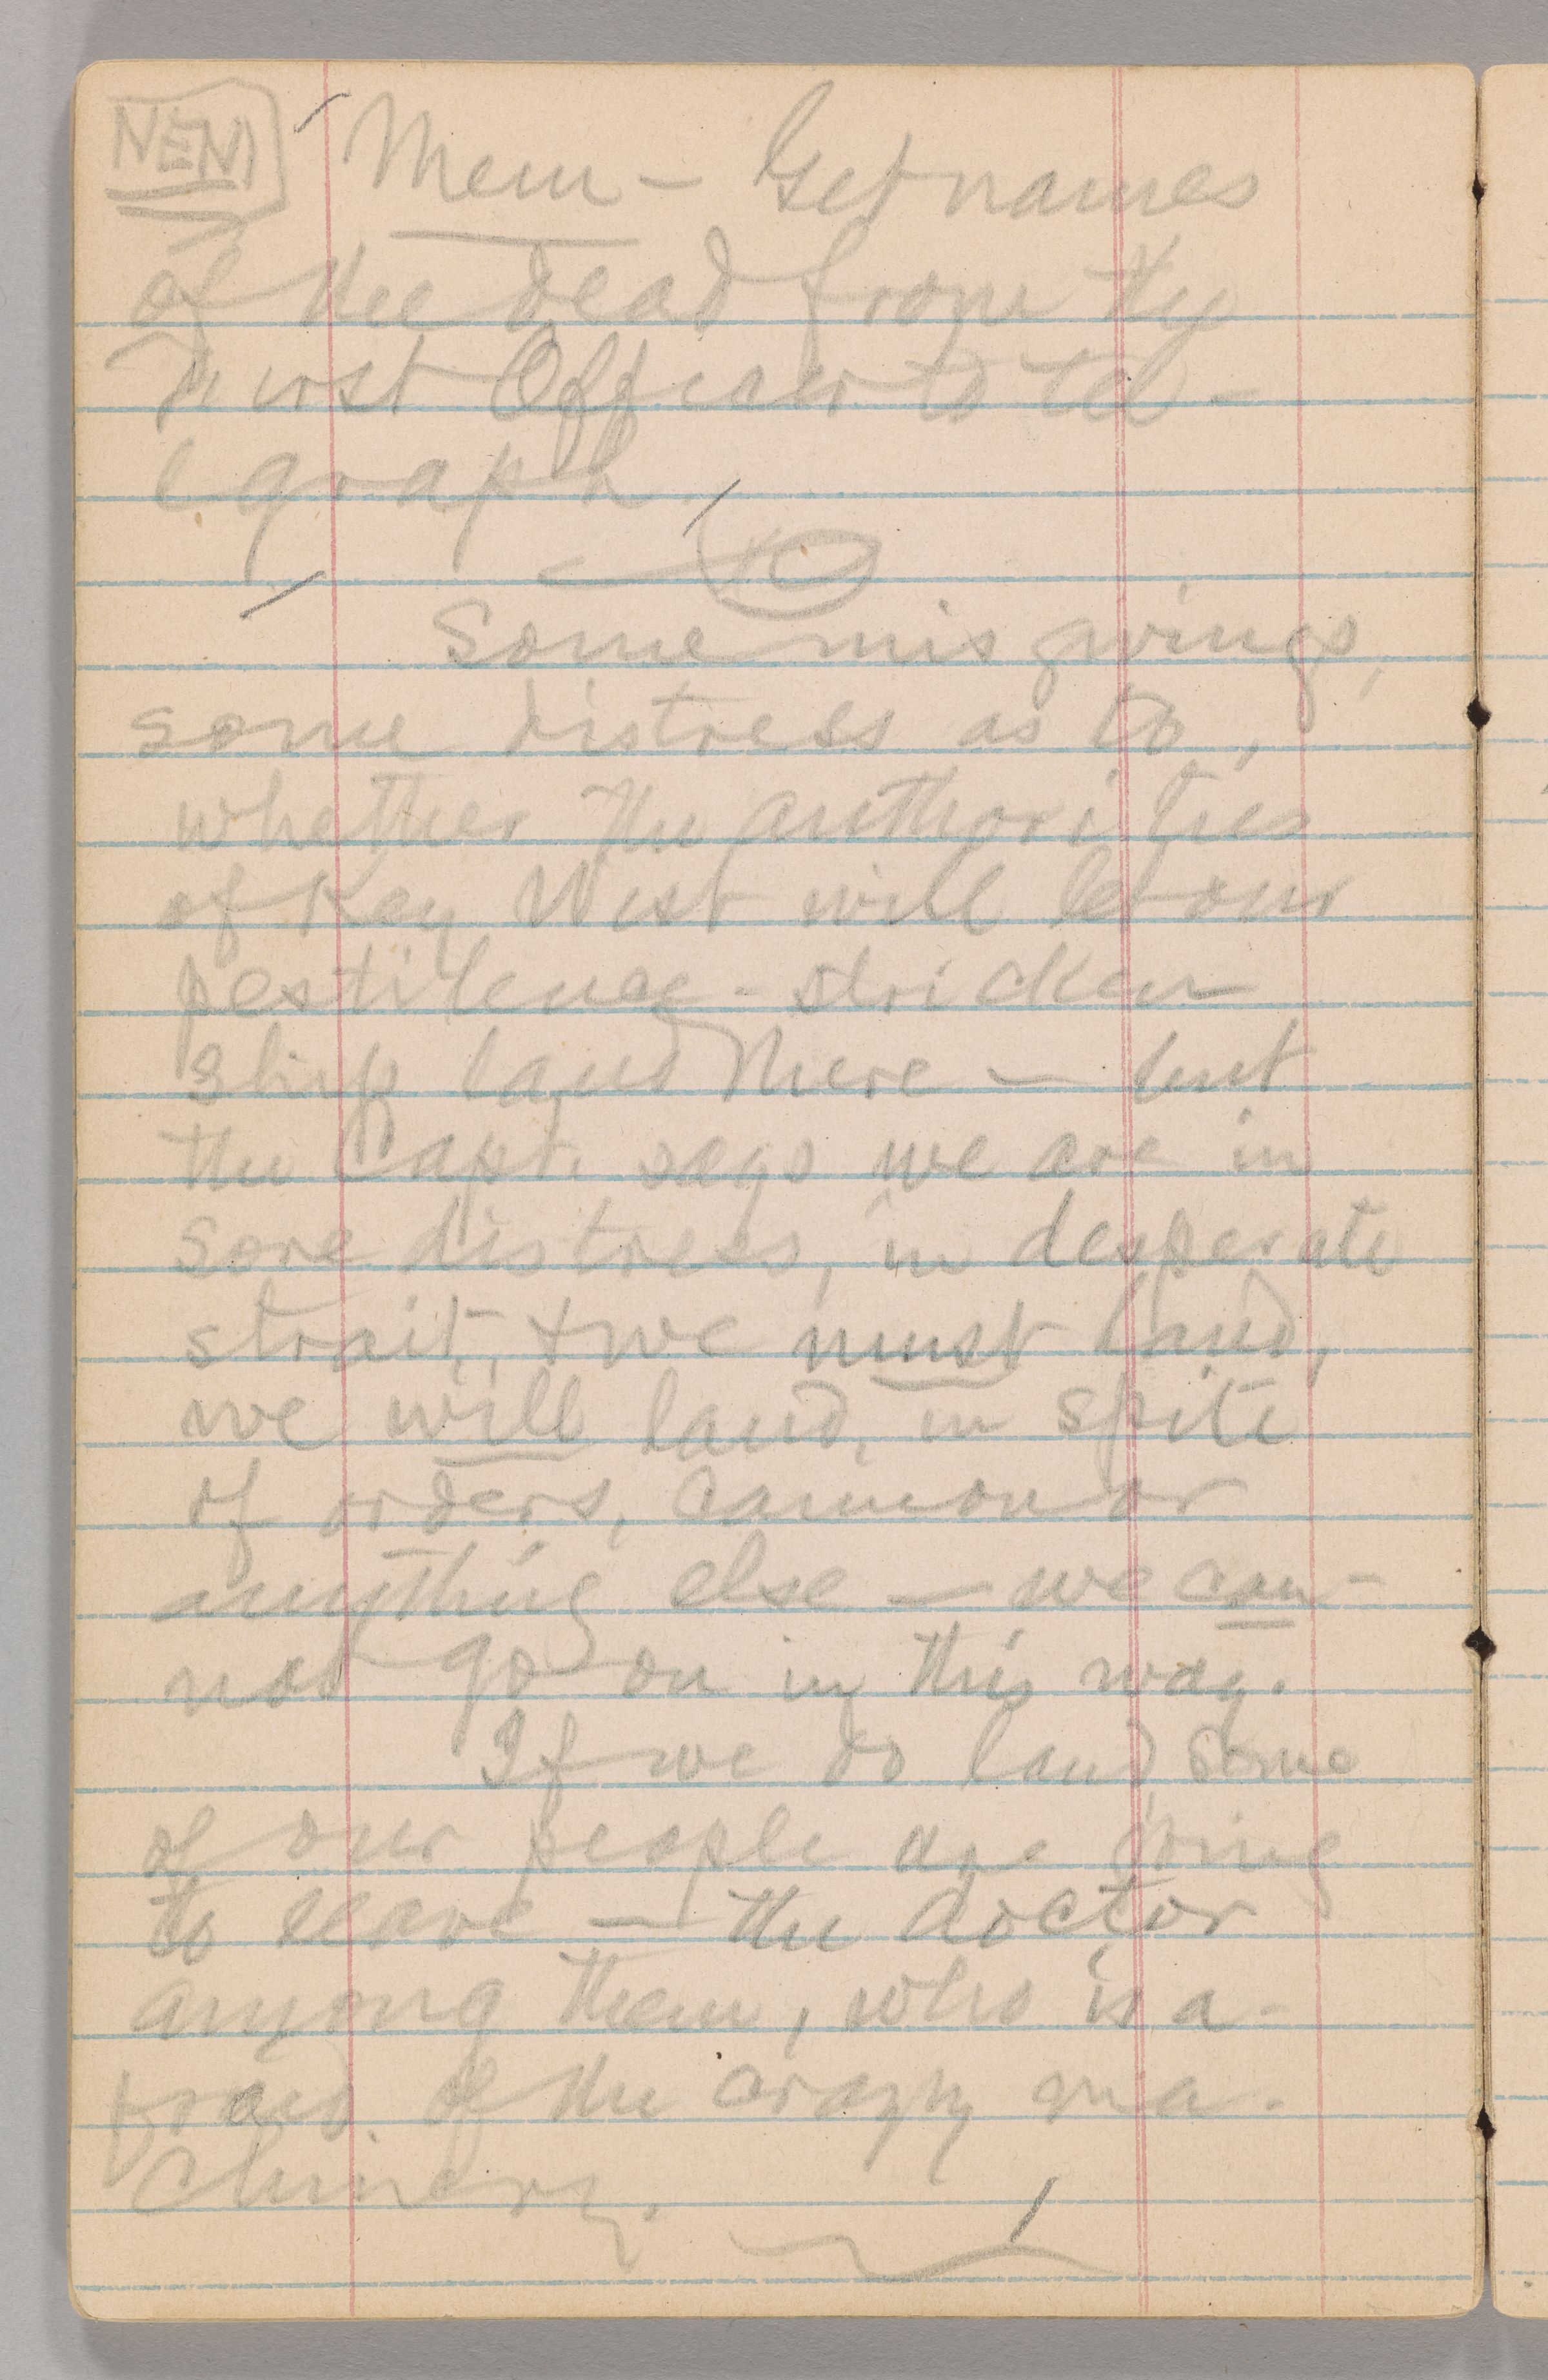 Mem — Get names
of the dead from the
First Officer to tel-
egraph.
Some misgivings,
some distress as to,
whether the authorities
of Key West will let our
pestilence-stricken
ship land there — but
the Capt. says we are in
sore distress, in desperate
strait, & we must land,
we will land, in spite
of orders, cannon or
anything else — we can-
not go on in this way.
If we do land, some
of our people are going
to leave — the doctor
among them, who is a-
fraid of the crazy ma-
chinery.